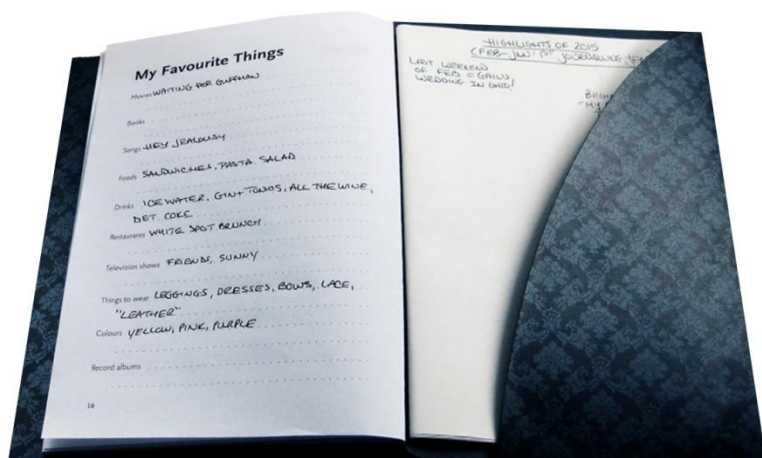 My Favourite Things
Movies WAITING FOR GUFFMAN
Books
Songs HEY JEALOUSY
Foods SANDWICHES, PASTA SALAD
Drinks ICE WATER, GIN + TONICS, ALL THE WINE,
DIET COKE
Restaurants WHITE SPOT BRUNCH
Television shows FRIENDS, SUNNY
Things to wear LEGGINGS, DRESSES, BOWS, LACE,
"LEATHER"
Colours YELLOW, PINK, PURPLE
Record albums
16
HIGHLIGHTS OF 2015
(FEB-JAN: 1ST JOURNALING
LAST WEEKEND
OF FEB = GAIL'S
WEDDING IN OHIO!
"MY